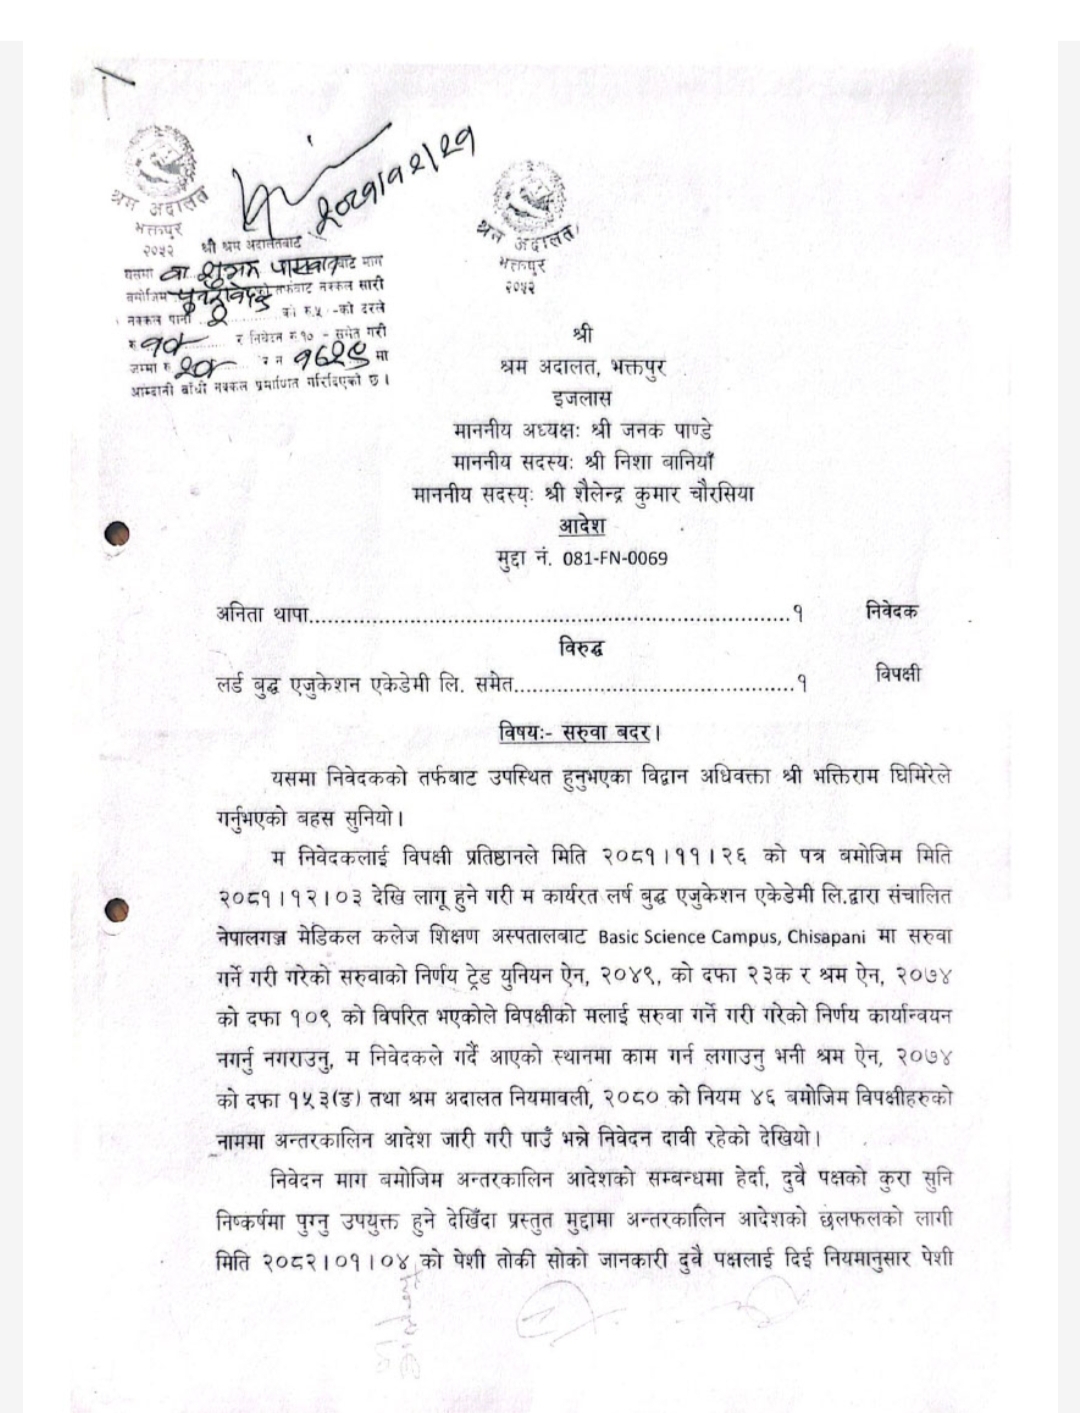 श्रम अदालत
भक्तपुर
२०५२
२०८१।१२।२१
श्रम अदालत
भक्तपुर
२०५२
श्री श्रम अदालतबाट
यसमा वा शुभम पासवान बाट माग
बमोजिम पुनरावेदक को तर्फबाट नक्कल सारी
नक्कल पाना २ को रु.५ -को दरले
रु १०/- र निवेदन रु.१० - समेत गरी
जम्मा रु २०/- र न मा
आम्दानी बाँधी नक्कल प्रमाणित गरिदिएको छ।
श्री
श्रम अदालत, भक्तपुर
इजलास
माननीय अध्यक्षः श्री जनक पाण्डे
माननीय सदस्यः श्री निशा बानियाँ
माननीय सदस्यः श्री शैलेन्द्र कुमार चौरसिया
आदेश
मुद्दा नं. 081-FN-0069
अनिता थापा................................................................................१ निवेदक
विरुद्ध
लर्ड बुद्ध एजुकेशन एकेडेमी लि. समेत..............................................१ विपक्षी
विषयः- सरुवा बदर।
यसमा निवेदकको तर्फबाट उपस्थित हुनुभएका विद्वान अधिवक्ता श्री भक्तिराम घिमिरेले
गर्नुभएको बहस सुनियो।
म निवेदकलाई विपक्षी प्रतिष्ठानले मिति २०८१।११।२६ को पत्र बमोजिम मिति
२०८१।१२।०३ देखि लागू हुने गरी म कार्यरत लर्ष बुद्ध एजुकेशन एकेडेमी लि.द्वारा संचालित
नेपालगञ्ज मेडिकल कलेज शिक्षण अस्पतालबाट Basic Science Campus, Chisapani मा सरुवा
गर्ने गरी गरेको सरुवाको निर्णय ट्रेड युनियन ऐन, २०४९, को दफा २३क र श्रम ऐन, २०७४
को दफा १०९ को विपरित भएकोले विपक्षीको मलाई सरुवा गर्ने गरी गरेको निर्णय कार्यान्वयन
नगर्नु नगराउनु, म निवेदकले गर्दै आएको स्थानमा काम गर्न लगाउनु भनी श्रम ऐन, २०७४
को दफा १५३(ङ) तथा श्रम अदालत नियमावली, २०८० को नियम ४६ बमोजिम विपक्षीहरुको
नाममा अन्तरकालिन आदेश जारी गरी पाउँ भन्ने निवेदन दावी रहेको देखियो।
निवेदन माग बमोजिम अन्तरकालिन आदेशको सम्बन्धमा हेर्दा, दुवै पक्षको कुरा सुनि
निष्कर्षमा पुग्नु उपयुक्त हुने देखिँदा प्रस्तुत मुद्दामा अन्तरकालिन आदेशको छलफलको लागी
मिति २०८२।०१।०४ को पेशी तोकी सोको जानकारी दुवै पक्षलाई दिई नियमानुसार पेशी